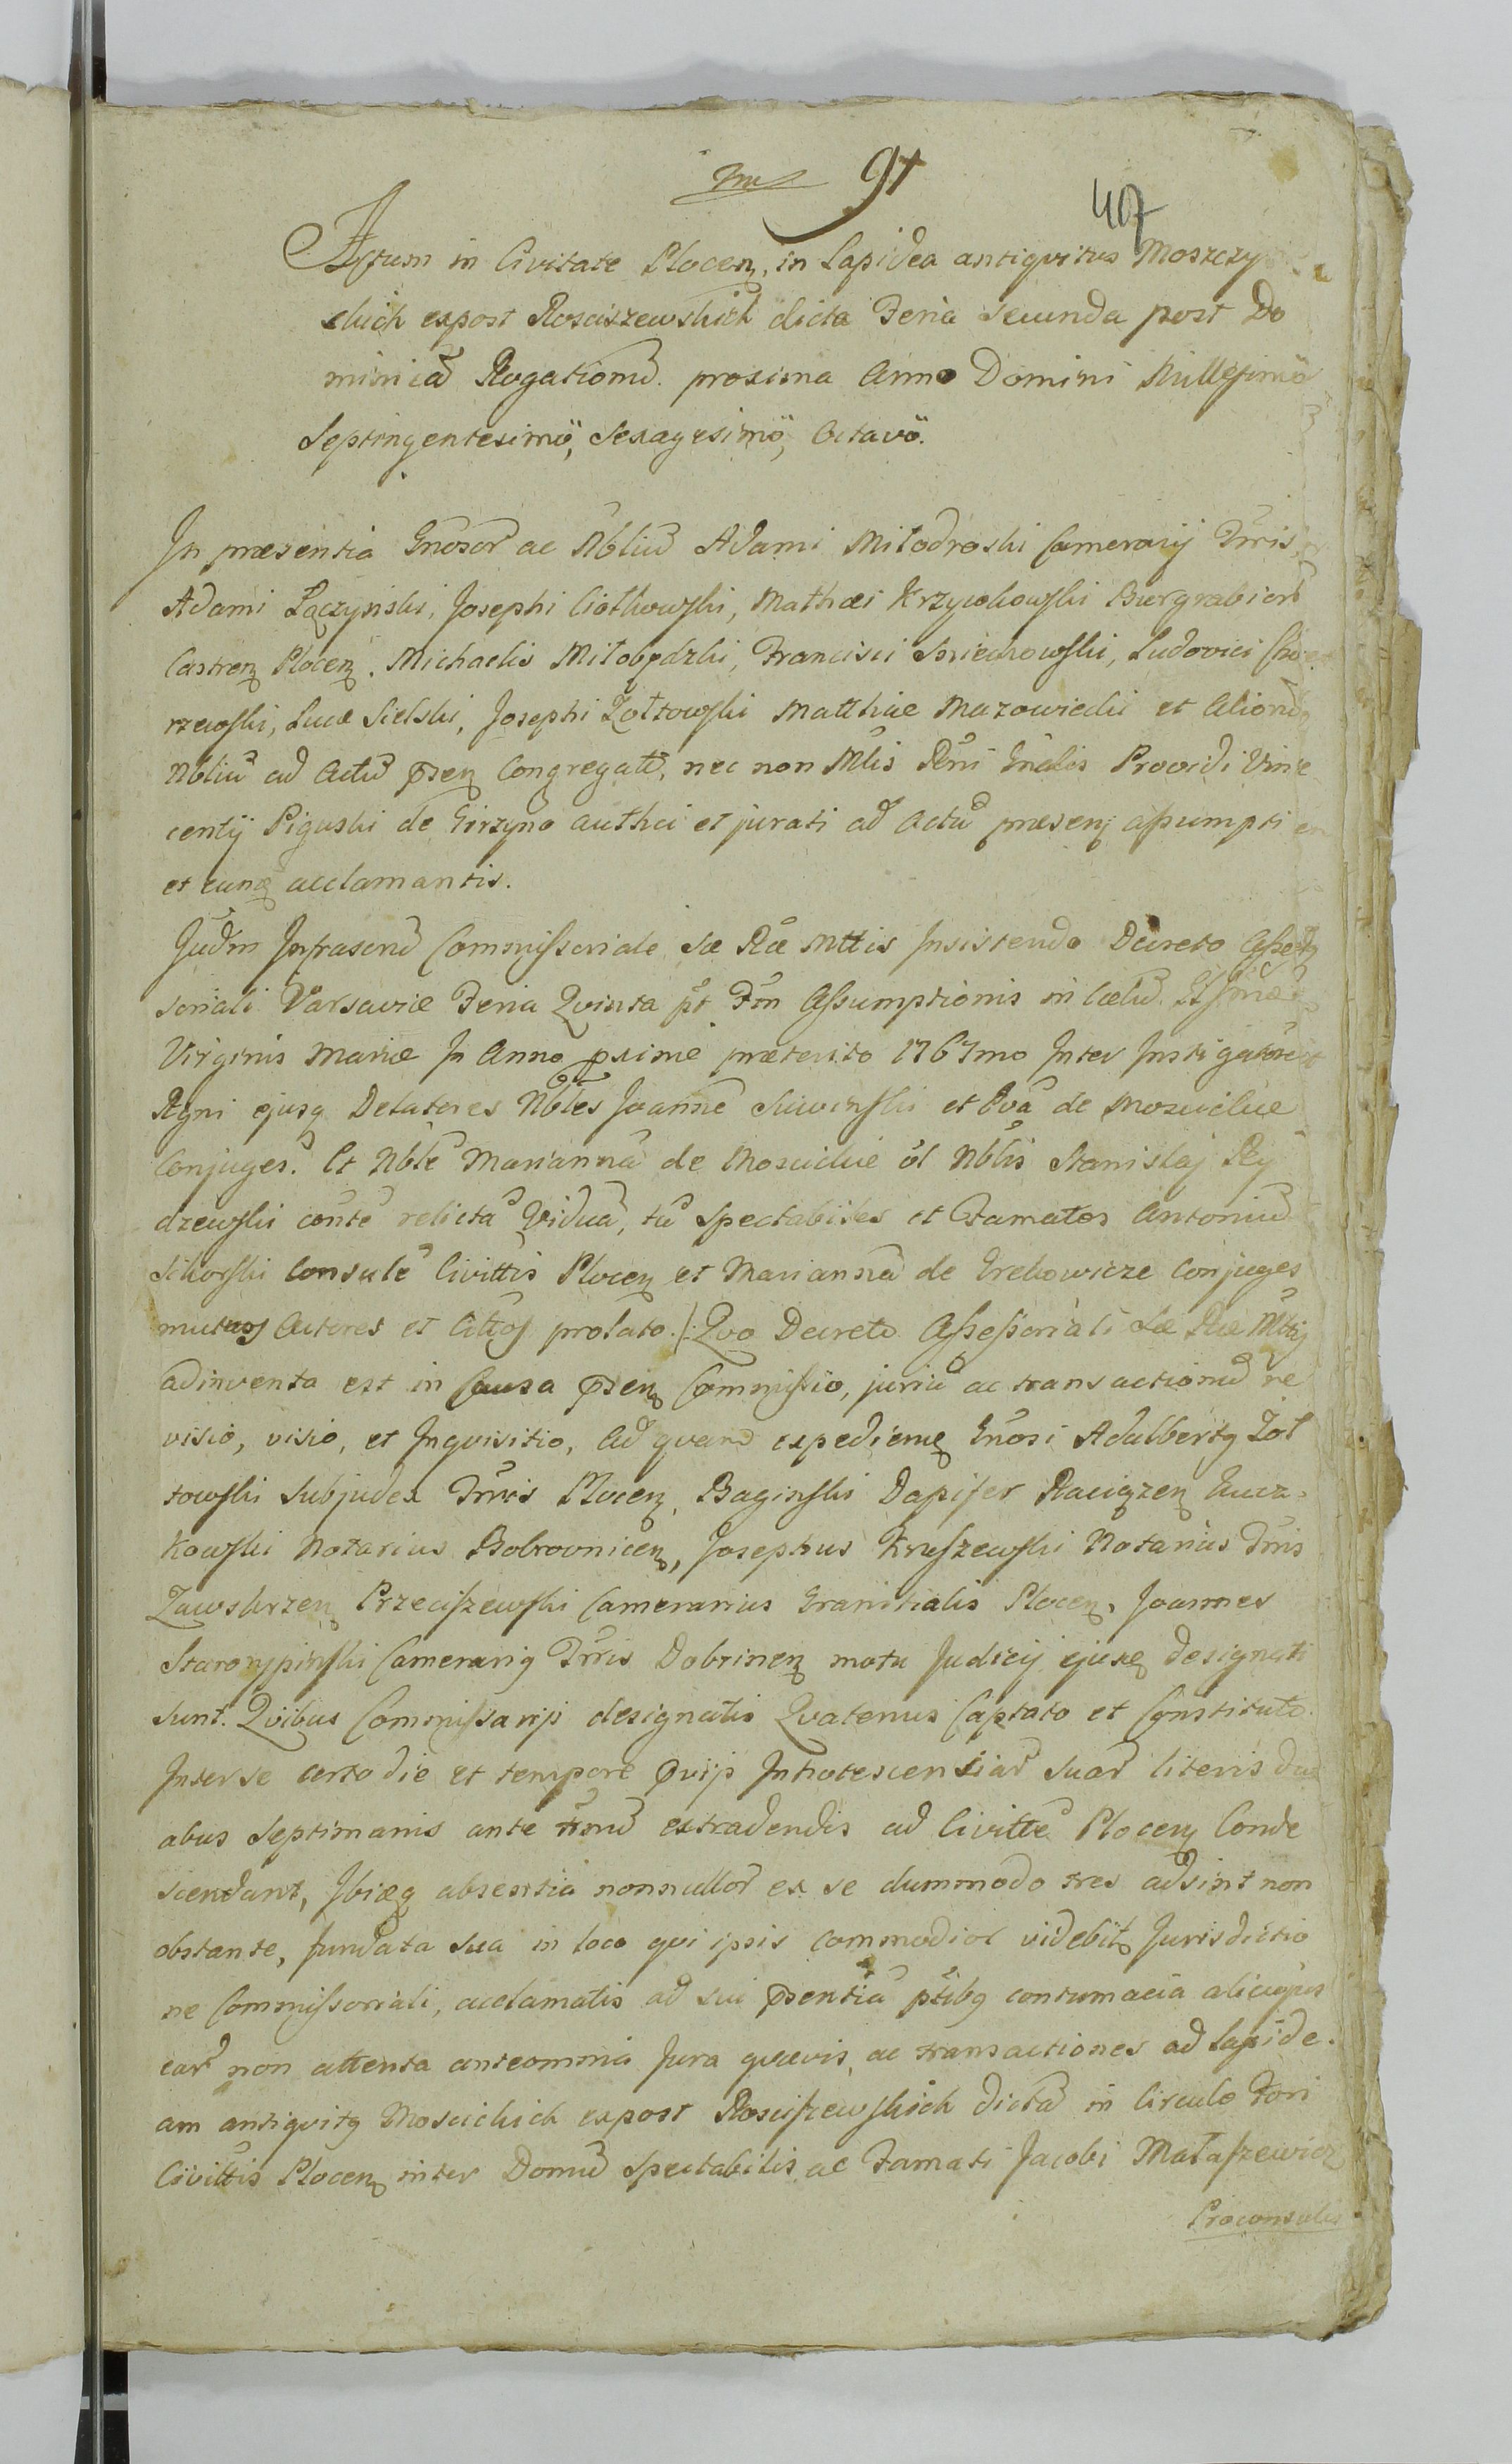 91
407
Actum in Civitate Plocen, in Lapidea antiqvitus Moszczy
skich expost Rosciszewskich dicta Feria Secunda post Do
minicā Rogationū. proxima Anno Domini Millesimō
Septingentesimō, Sexagesimō, Octavō.
In præsentia Gnosor ac Nbliū Adami Miłodroski Camerarij Trris,
Adami Łączyński, Josephi Ciołkowski, Mathæi Krzywkowski Burgrabior
Castren Plocen. Michaelis Miłobędzki, Francisci Smiechowski, Ludovici
rzewski, Lucæ Sielski, Josephi Zołtowski Matthiæ Mazowiecki et Alior
Nbliū ad Actū pñsen Congregatū, nec non Mlis Rñi Gñalis Providi Vin
centij Piguski de Girzyno authci et jurati ad Actū præsen assumpti
et eunq acclamantis.
Judm Infrascrū Commissoriale Sæ Ræ Mttis Insistendo Decreto Asses
soriali Varsaviæ Feria Qvinta pt Fm Assumptionis in Cœlū.
Virginis Mariæ In Anno pxime præterito 1767mo Inter Instigatorē
Rgni ejusq Delatores Nbles Joannē Siwinski et Evā de
Conjuges. Et Nblē Mariannā de Moscickie ol Nblis Stanislaj Ry
dzewski conte relictā Viduā, tū Spectabiles et Famatos Antoniū
Sikorski Consulē Civittis Plocen et Mariannā de Grekowicze Conjuges
mutuos Actores et Cittos prolato. /: Qvo Decreto Assessoriali Sæ Ræ Mttis
adinventa est in Causa pñsen Commissio, juriū ac transactionū re
visio, visio, et Inqvisitio, Ad qvam expedienę Gnosi Adalberty Zoł
towski Subjudex Trris Plocen, Baginski Dapifer Raciązen Kucz-
kowski Notarius Bobrovnicen, Josephus Kruszewski Notarius Trris
Zawskrzen Przeciszewski Camerarius Granitialis Plocen, Joannes
Starorypinski Camerarij Trris Dobrinen motu Judicij ejusę designati
sunt. Qvibus Commissarijs designatis Qvatenus Captato et Constituto
Inter se certo die et tempore pvijs Innotescentiar suar literis du
abus Septimanis ante tmū extradendis ad Civittē Plocen Conde
scendant, Ibiæq absentia nonnullor ex se dummodo tres adsint non
obstante, fundata sua in loco qvi ipsis commodior videbit Jurisdictio
ne Commissoriali, acclamatis ad sui pñsentiā ptibq contumacia alicujus
ear non attenta anteomnia Jura qvævis, ac transactiones ad Lapide-
am antiqvitq Moscickich expost Rosciszewskich dictā in Circulo Fori
Civittis Plocen inter Domū Spectabilis ac Famati Jacobi Mataszewicz
Proconsulis